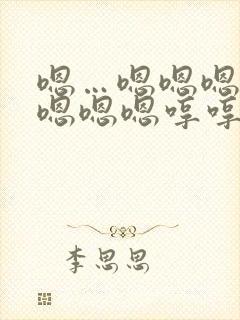 嗯…嗯嗯嗯
嗯嗯嗯哼哼
李思思